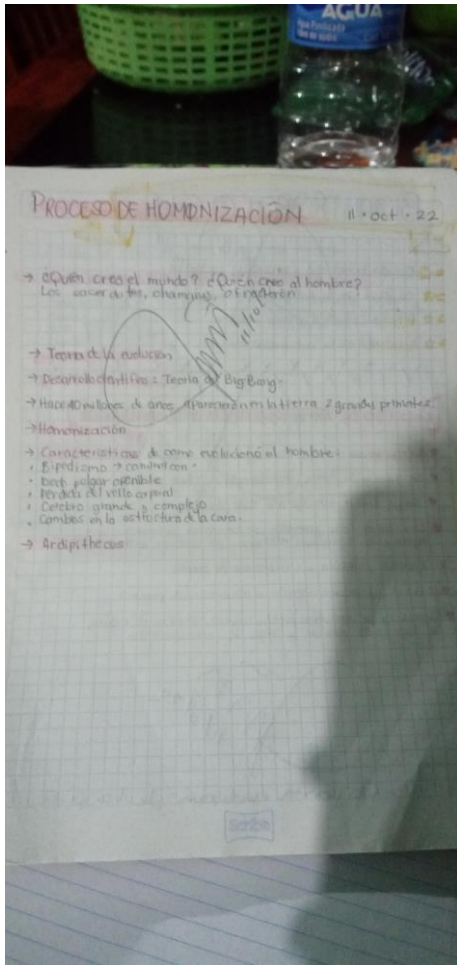 AGUA
PROCESO DE HOMONIZACIÓN 11 · oct · 22
→ ¿Quién crea el mundo? ¿Quién creó al hombre?
Los sacerdotes,
11/10/
→ Teoria de la evolución
→ Desarrollo cientifico: Teoria del Big Bang.
→ Hace 40 millones de anes aparecieron en la tierra 2 grandes primates.
→ Homonización
→ Caracteristicas de como evoluciono el hombre:
· Bipedismo →
· Dedo pulgar oponible
· Perdida del vello corporal
· Cerebro grande y complejo
· Cambios en la estructura de la cara.
→ Ardipithecus
Scribe